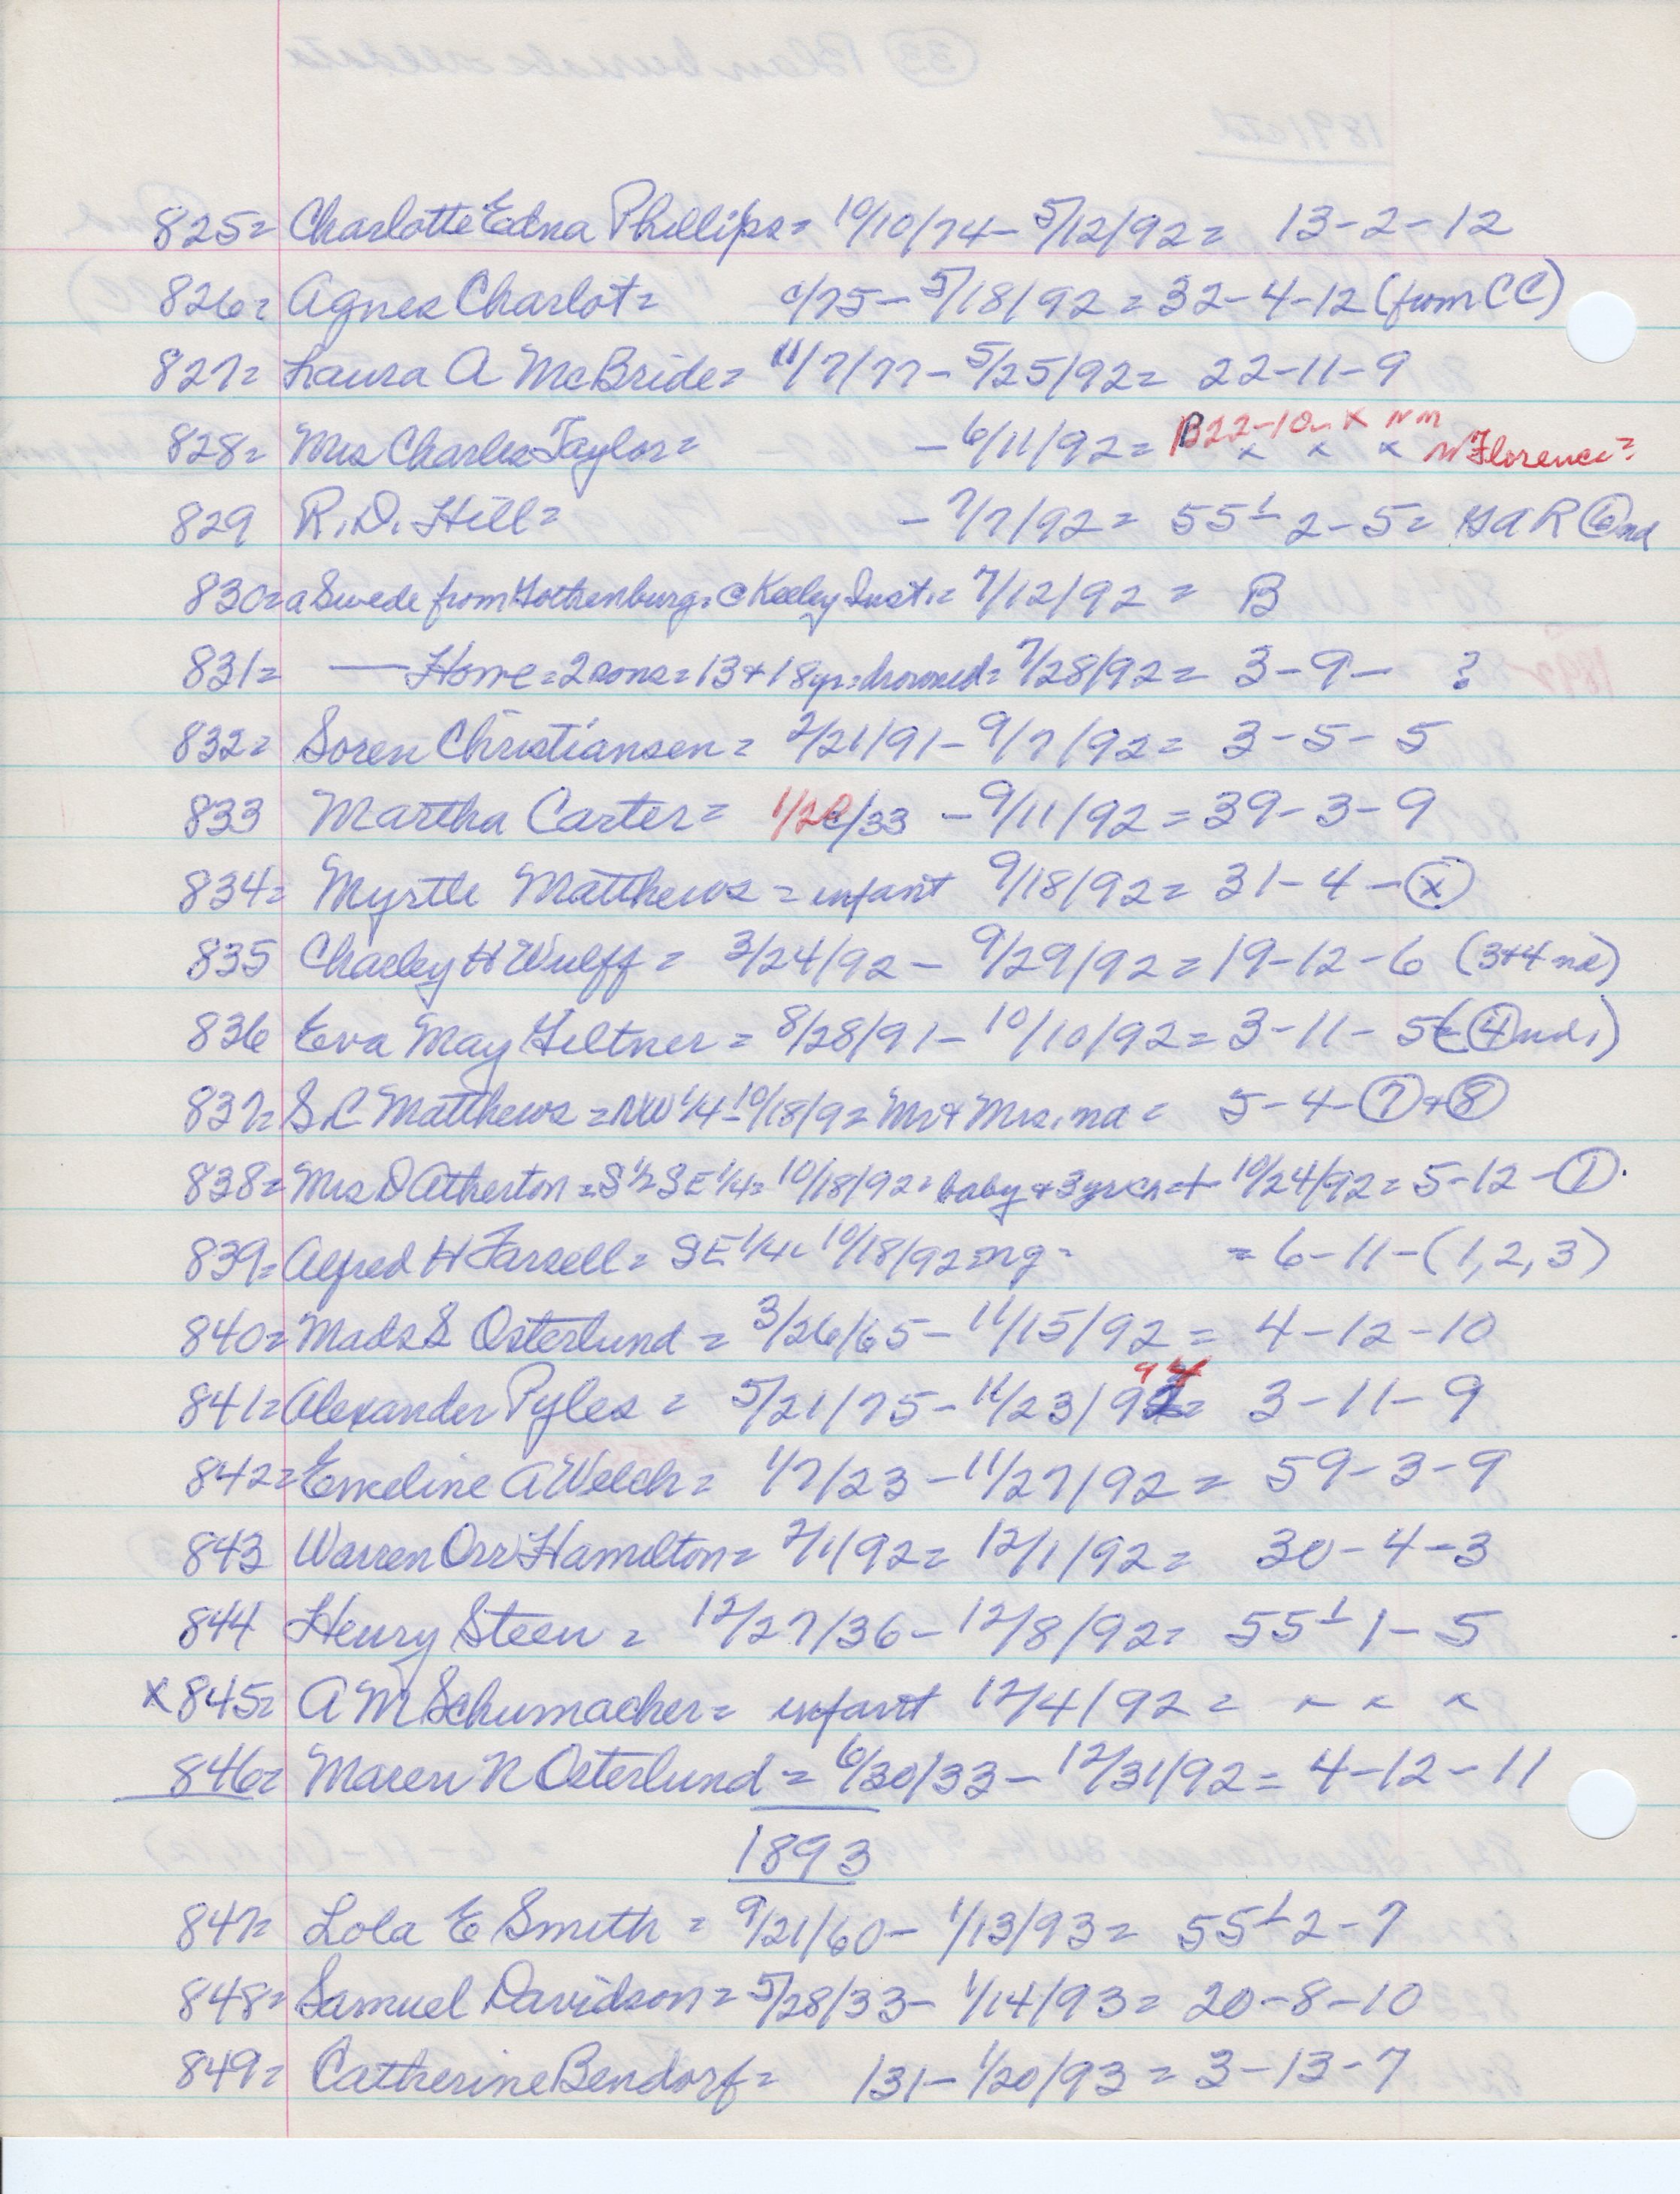 825= Charlotte Edna Phillips= 10/10/74- 5/12/92= 13-2-12
826= Agnes Charlot= c/75- 5/18/92=32-4-12 (from CC)
827= Laura A McBride= 11/7/77- 5/25/92= 22-11-9
828= Mrs Charles Taylor= -6/11/92= B22-10- x NM
x x x Florence?
829 R.D. Hill= -7/7/92= 55½ 2-5= GAR 6 nd
830= a Swede from Gothenburg. @ Keeley Inst.= 7/12/92= B
831= — Home=2 sons=13+18yr=drowned= 7/28/92= 3-9- ?
832= Soren Christiansen= 2/21/91- 9/7/92= 3-5-5
833 Martha Carter= 1/20/33 -9/11/92=39-3-9
834= Myrtle Matthews=infant 9/18/92= 31-4-x
835 Charley H Wulff= 3/24/92- 9/29/92=19-12-6 (3+4 nd)
836 Eva May Giltner= 8/28/91- 10/10/92=3-11-5 (4 nd.)
837= S.C Matthews=NW 1/4-10/18/92 Mr+Mrs. na= 5-4-7+8
838= Mrs D Atherton=S½SE 1/4= 10/18/92= baby+3yr ch=+ 10/24/92=5-12-1.
839= Alfred H Farsell= SE 1/4= 10/18/92=ng= =6-11-(1,2,3)
840= Mads S Osterlund= 3/26/65- 11/15/92= 4-12-10
94
841= Alexander Pyles= 5/21/75-11/23/92= 3-11-9
842= Emeline A Welch= 1/7/23-11/27/92= 59-3-9
843 Warren Orr Hamilton= 7/1/92= 12/1/92= 30-4-3
844 Henry Steen= 12/27/36-12/8/92= 55½ 1-5
x845= A M Schumacher= infant 12/4/92= x x x
846= Maren N Osterlund=6/30/33-12/31/92= 4-12-11
1893
847= Lola E Smith= 9/21/60- 1/13/93= 55½ 2-7
848= Samuel Davidson= 5/28/33- 1/14/93= 20-8-10
849= Catherine Bendorf= 131-1/20/93=3-13-7